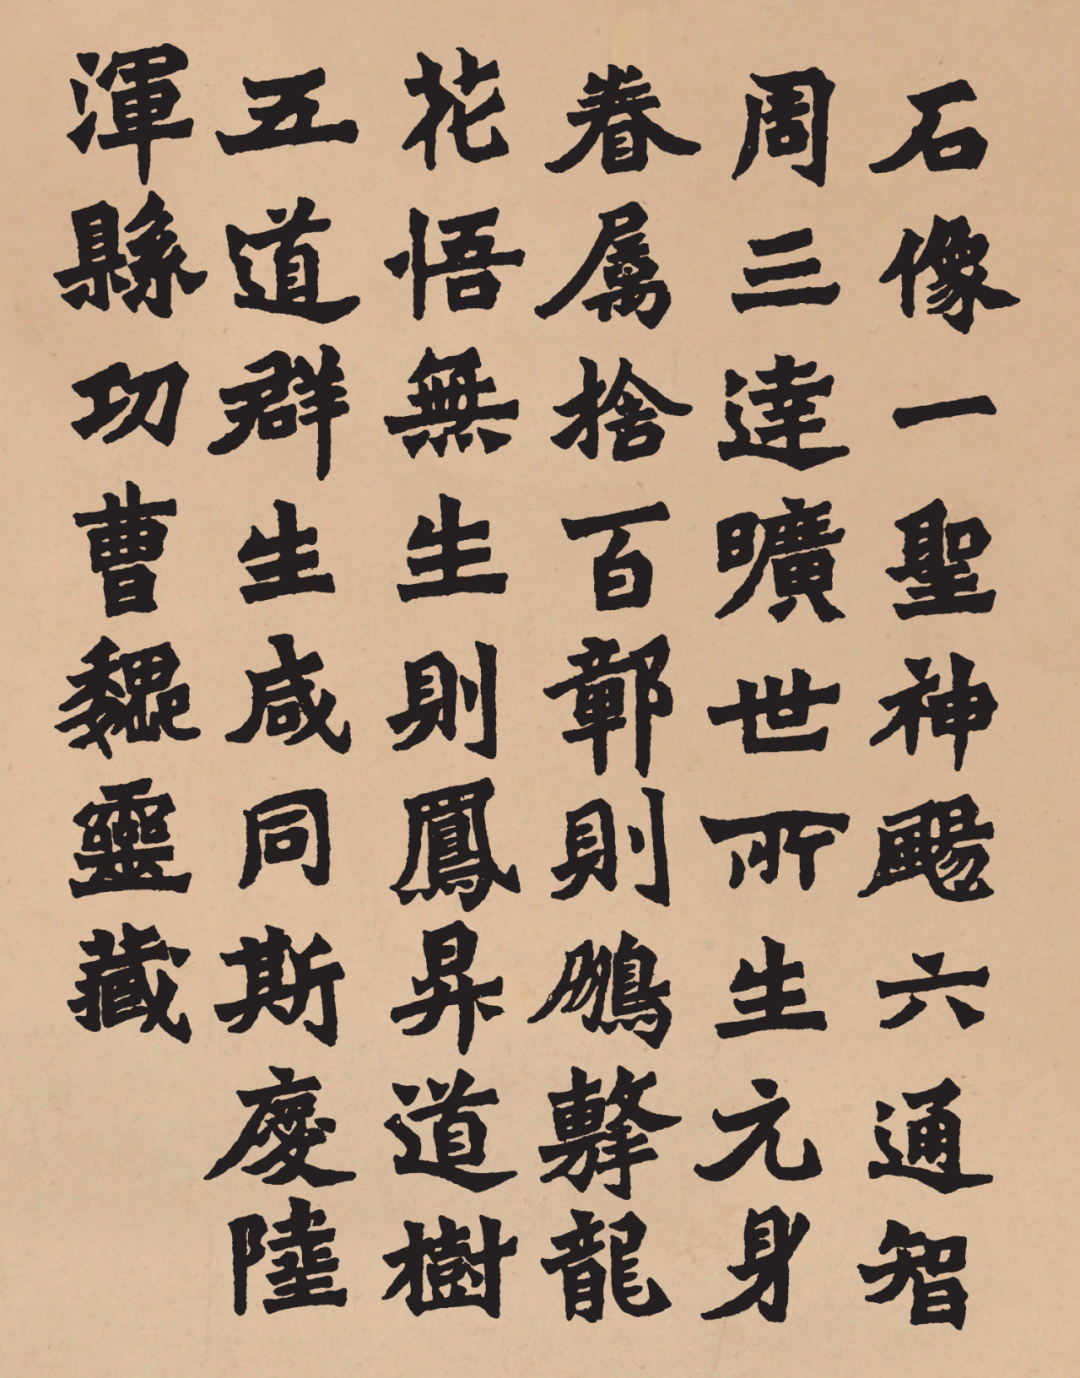 石像一聖神颺六通智
周三達曠世所生元身
眷屬捨百鄣則鵬擊龍
花悟無生則鳳昇道樹
五道群生咸同斯慶陸
渾縣功曹魏靈藏